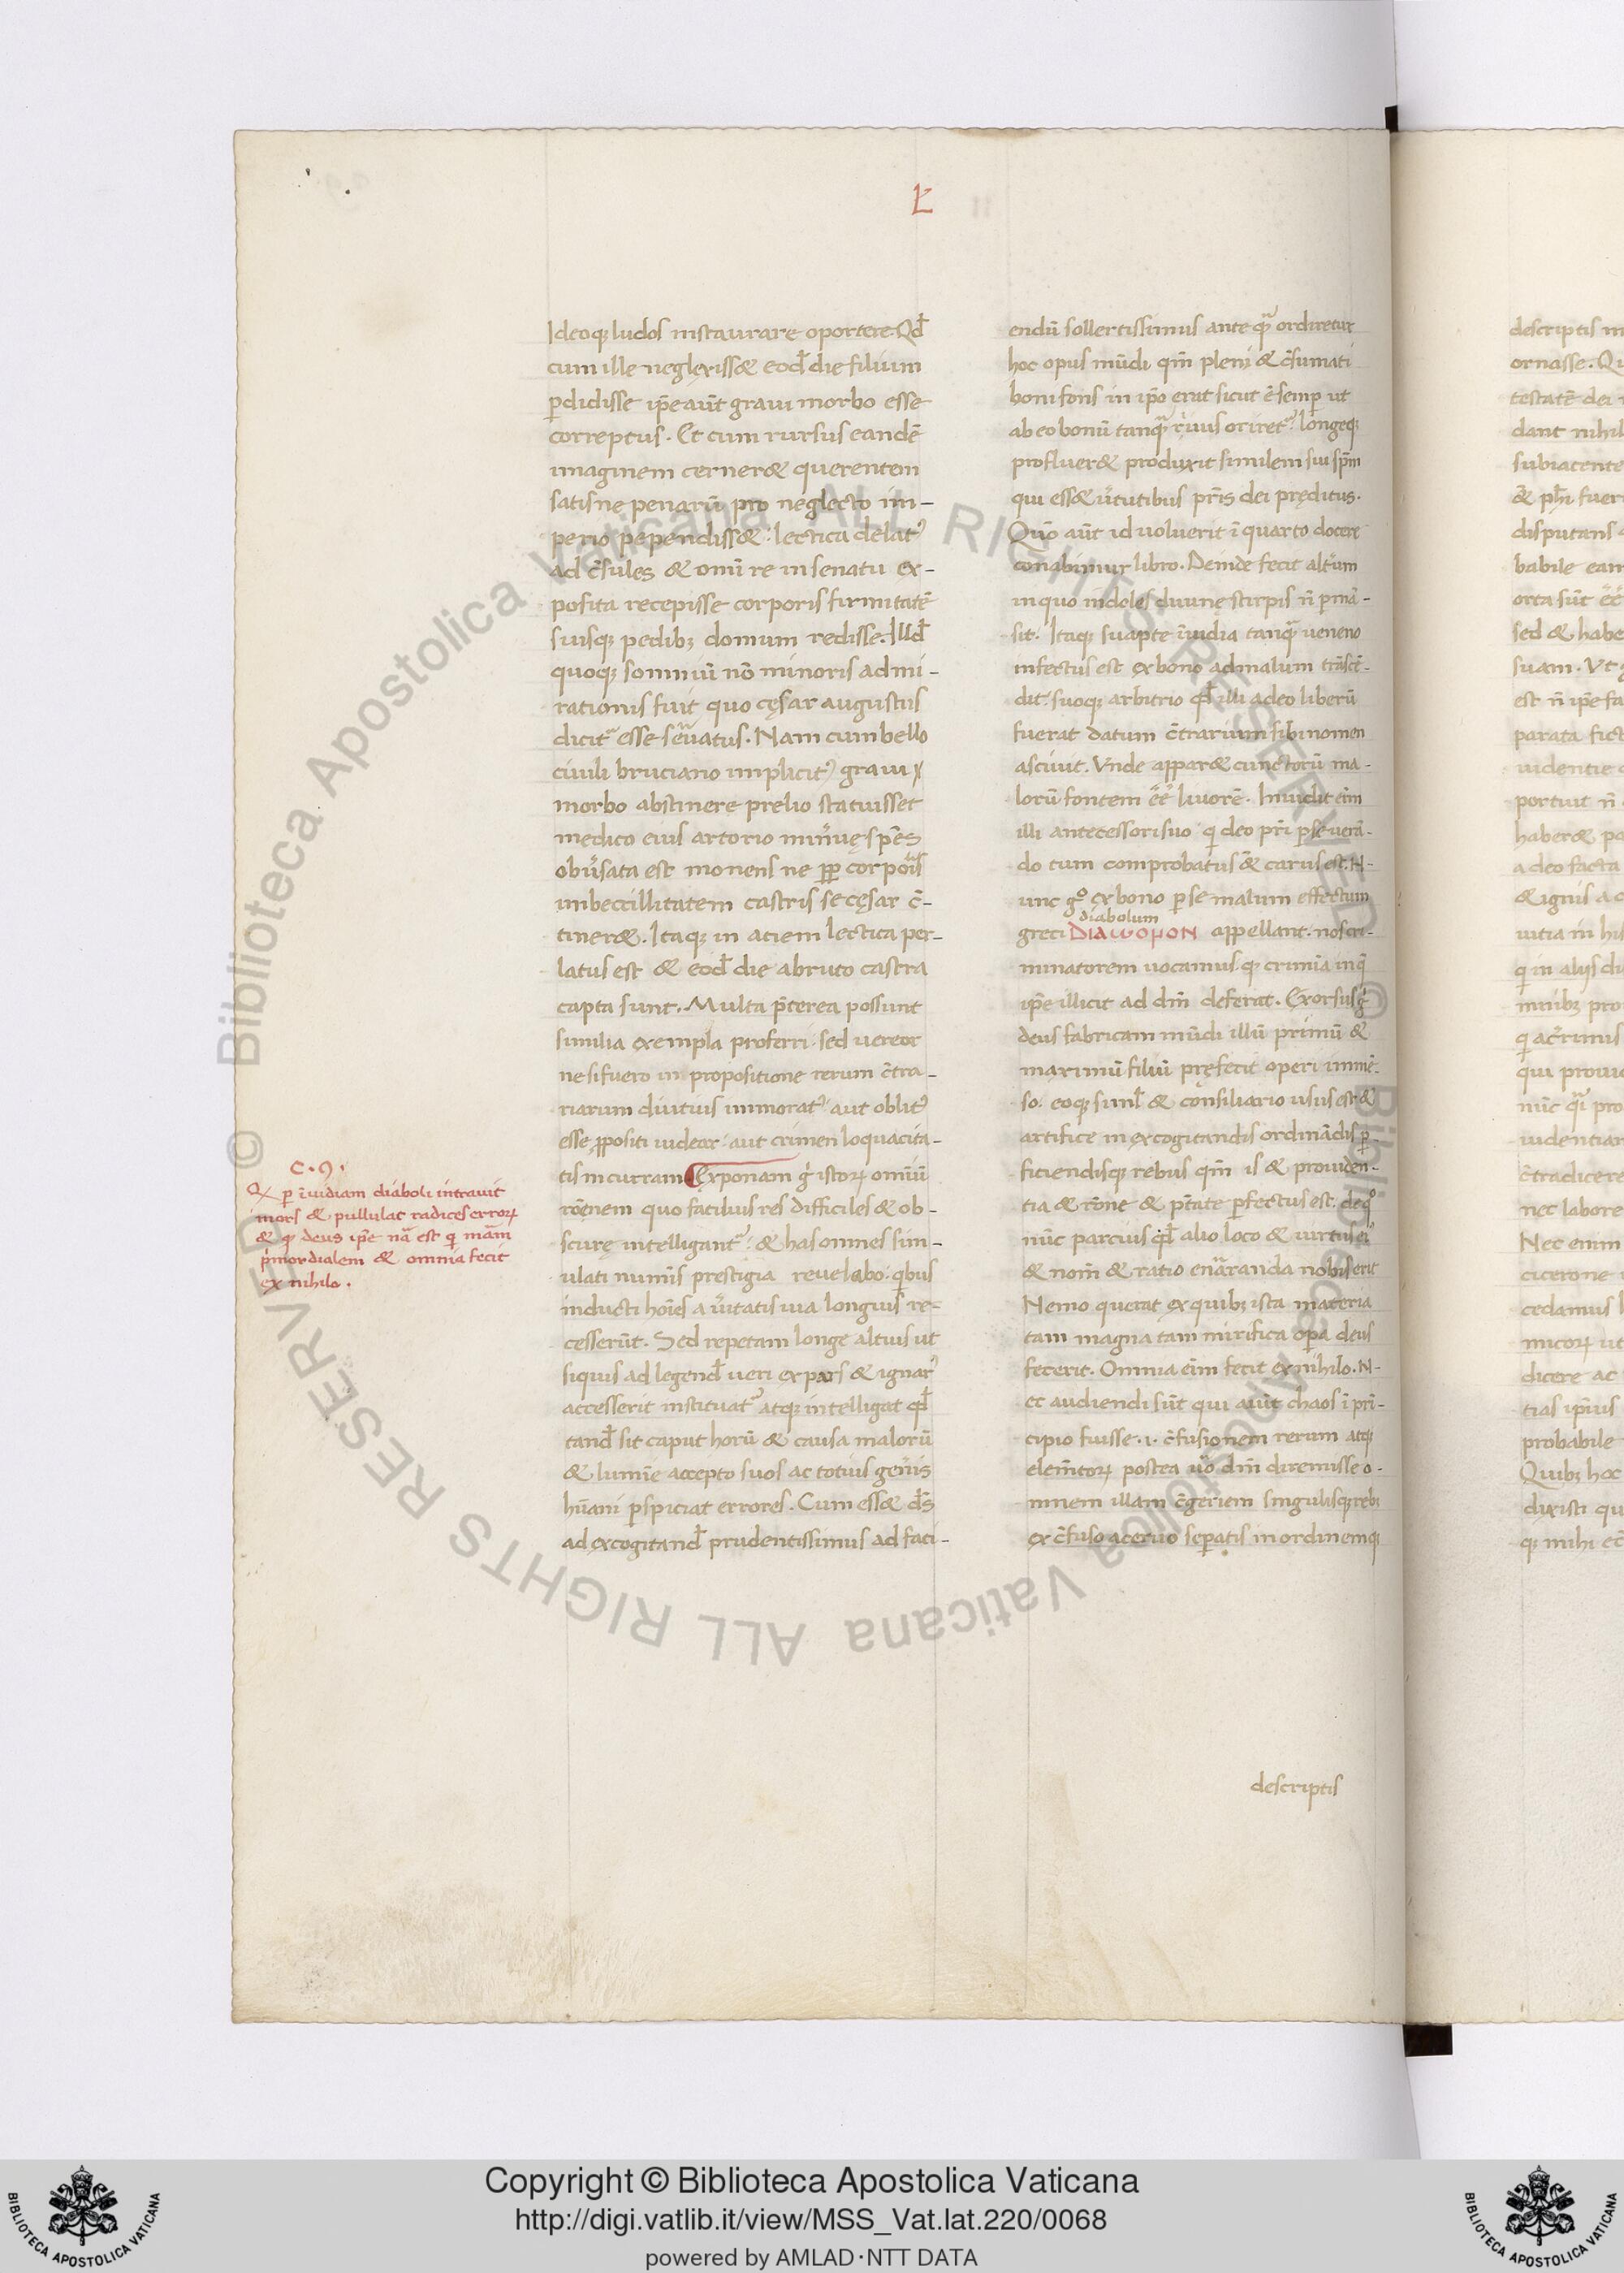 Ł
Ideoq; ludos instaurare oportere. Qđ
cum ille neglexiss& eođ die filium
p̱didisse ip̄e aūt graui morbo esse
correptus. Et cum rursus eandē
imaginem cerner& querentem
satisne penarū pro neglecto im-
perio pependiss&: lectica delatꝰ
ad c̄sules & omī re in senatu ex-
posita recepisse corporis firmitatē
suisq; pedib; domum redisse. Illđ
quoq; somniū nō minoris admi-
rationis fuit quo cęsar augustus
dicit᷑ esse seruatus. Nam cum bello
ciuili bruciano implicitꝰ graui
morbo abstinere prelio statuisset
medico eius artorio min͛uę spēs
obu͛sata est monens ne ꝓp̱ corporis
imbecillitatem castris se cęsar c̄-
tiner&. Itaq; in aciem lectica per-
latus est & eođ die abruto castra
capta sunt. Multa p̄terea possunt
similia exempla proferri. sed uereor
ne si fuero in propositione rerum c̄tra-
riarum diutius immoratꝰ aut oblitꝰ
esse ꝓpositi uidear. aut crimen loquacita-
tis incurram Exponam gͥ istoꝝ omiū
rōenem quo facilius res difficiles & ob-
scure intelligant᷑: & has omnes sim-
ulati numīs prestigia reuelabo: qͥbus
inducti hoīes a u͛itatis uia longius re=
cesserūt. Sed repetam longe altius ut
siquis ad legenđ ueri expars & ignarꝰ
accesserit instituat᷑ atq; intelligat qđ
tanđ sit caput horū & causa malorū
& lumīe accepto suos ac totius gen͛is
hūani p̱spiciat errores. Cum ess& d̄s
ad excogitanđ prudentissimus ad faci-
C.9.
Q p̱ īuidiam diaboli intrauit
mors & pullulat radices erroꝝ
& q; deus ip̄e nā est qͥ mām
pͥmordialem & omnia fecit
ex nihilo.
endū sollertissimus ante qᷓ ordiretur
hoc opus mūdi qm̄ pleni & c̄sumati
boni fons in ip̄o erat sicut ē semp̱ ut
ab eo bonū tanqᷓ riuus oriret᷑ longeq;
profluer& produxit similem sui sp̄m
qui ess& u͛tutibus pr̄is dei pręditus.
Quō aūt id voluerit ī quarto docere
conabimur libro. Deinde fecit alt͛um
in quo indoles diuinę stirpis n̄ p̱mā-
sit. Itaq; suapte īuidia tanqᷓ ueneno
infectus est ex bono ad malum trāscē-
dit. suoq; arbitrio qđ illi a deo liberū
fuerat datum c̄trarium sibi nomen
asciuit. Vnde appar& cunctorū ma-
lorū fontem ēē liuorē. Inuidit eīm
illi antecessori suo qͥ deo pr̄i p̱seuerā-
do tum comprobatus & carus est. N-
unc gͦ ex bono p̱ se malum effectum
diabolum
greci DIAωOμON appellant. nos cri-
minatorem uocamus. q; crimīa in qͥ
ip̄e illicit ad dm̄ deferat. Exorsus gͥ
deus fabricam mūdi illū primū &
maximū filiū pręfecit operi immē-
so. eoq; siml̄ & consiliario usus est &
artifice in excogitandis ordināndis p̱-
ficiendisq; rebus qm̄ is & prouiden-
tia & rōne & p̄tate p̱fectus est. de qͦ
nūc parcius qđ alio loco & uirtus eiꝰ
& nom̄ & ratio enarranda nobis erit
Nemo querat ex quib; ista materia
tam magna tam mirifica op̱a deus
fecerit. Omnia eīm fecit ex nihilo. N-
ec audiendi sūt qui aiūt chaos ī prī-
cipio fuisse .i. c̄fusionem rerum atq;
elem̄toꝝ postea uͦo dm̄ diremisse o-
mnem illam c̄geriem singulisq; reb;
ex c̄fuso aceruo sep̱atis in ordinemq;
descriptis
descriptis
ornasse. Qu
testatē dei
dant nihil
subiacente
disputans
babile eam
sed & habe
suam. Vt
est n̄ ip̄e fa
parata fict
uidentie
portuit n̄
haber&
a deo facta
& ignis a
uitia in
qͥ in alijs
mīb; pro
qui proui
nūc qᷓi pro
uidentiam
c̄tradicere
nec labore
Nec enim
cicerone
cedamus
micoꝝ ut
dicere ac
tias ip̄ius
probabile
Quib; hoc
duxisti qu
q; mihi
Copyright © Biblioteca Apostolica Vaticana
http://digi.vatlib.it/view/MSS_Vat.lat.220/0068
powered by AMLAD·NTT DATA
BIBLIOTECA APOSTOLICA VATICANA
BIBLIOTECA APOSTOLICA VATICANA
© Biblioteca Apostolica Vaticana ALL RIGHTS RESERVED
© Biblioteca Apostolica Vaticana ALL RIGHTS RESERVED